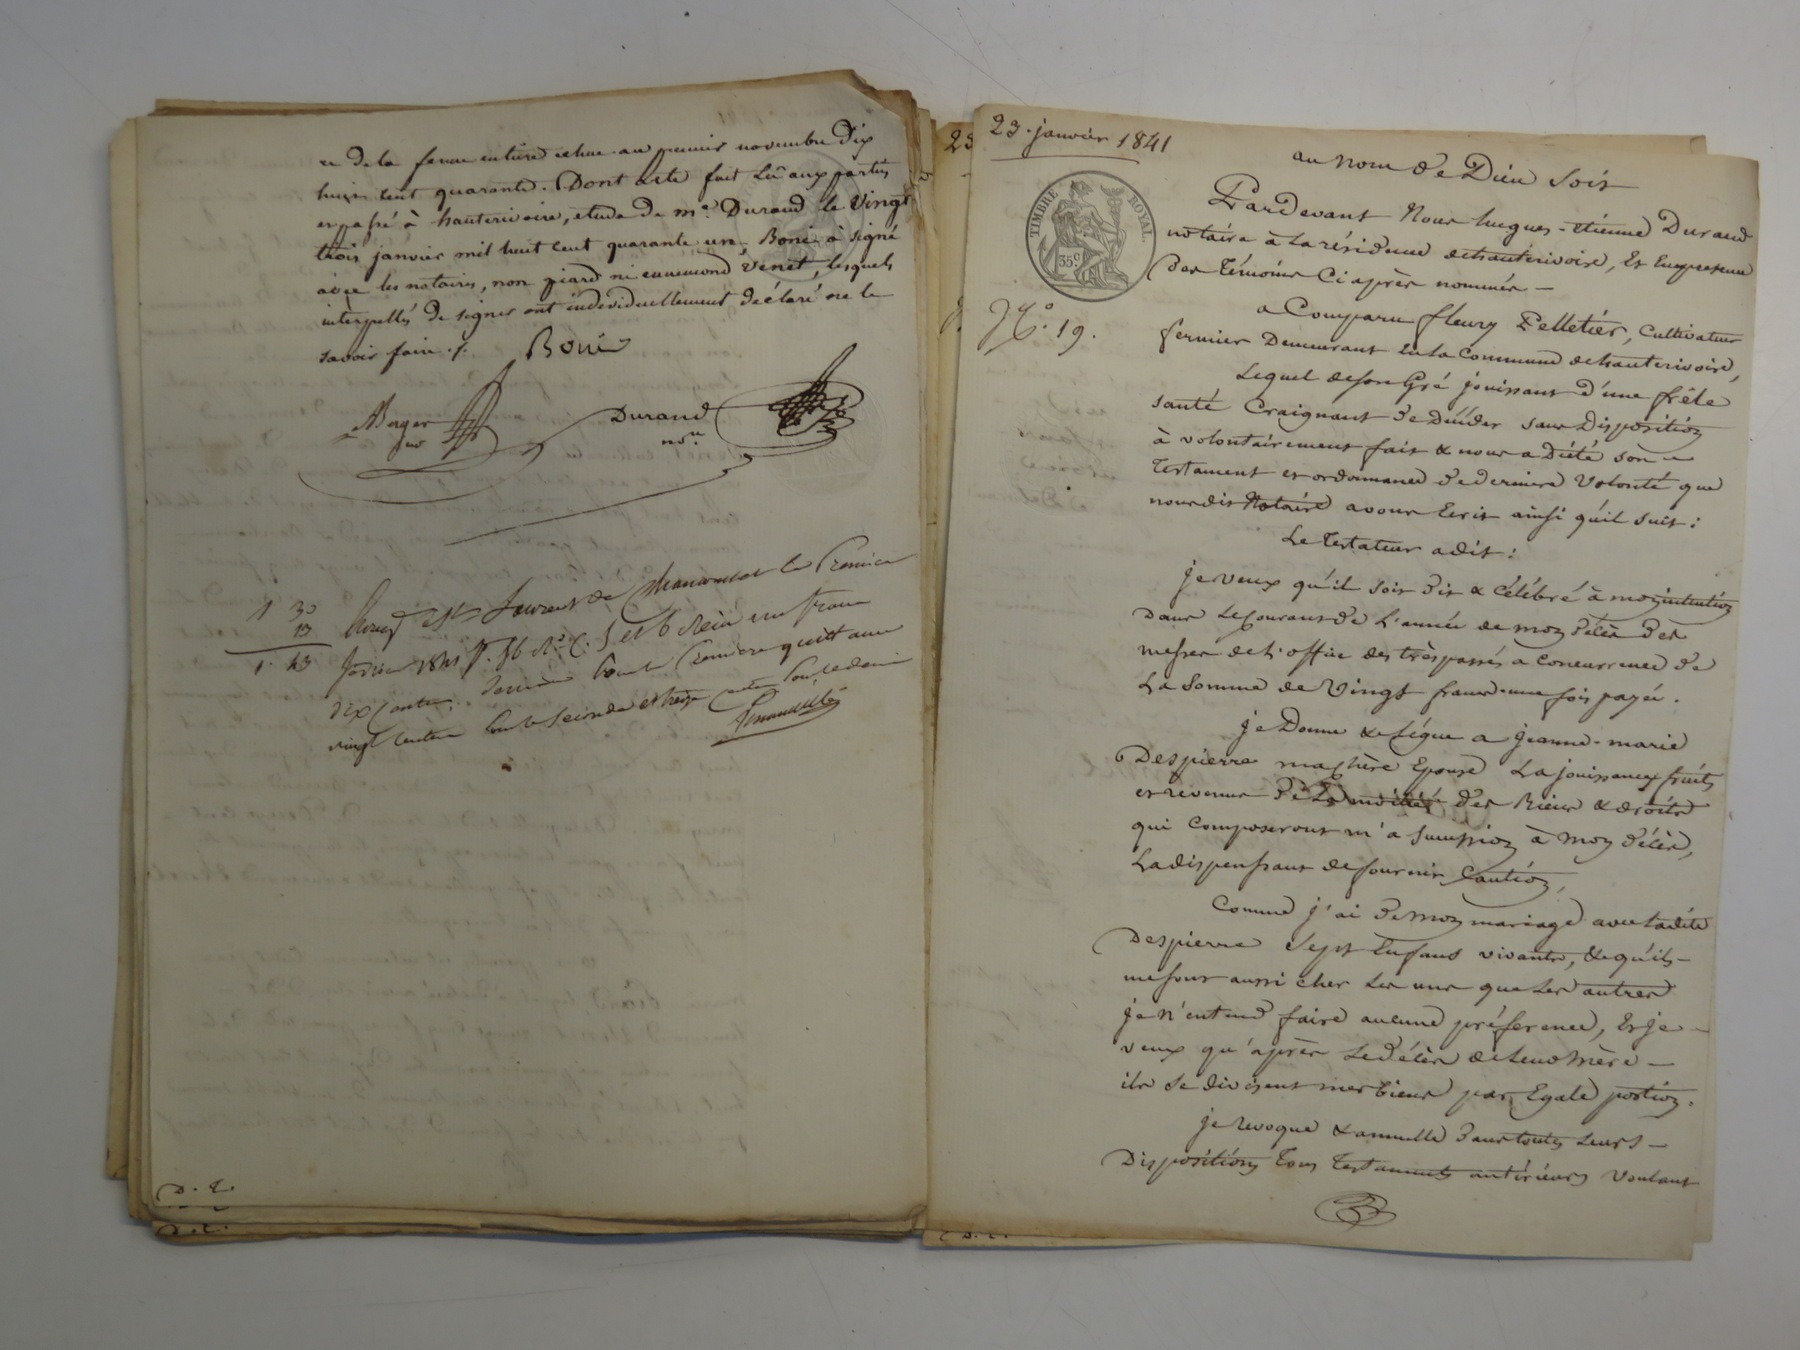 de la ferme entière échue au premier novembre dix
huit cent quarante. Dont acte fait lû aux parties
et passé à hauterivoire, etude de me. Durand le vingt
trois janvier mil huit cent quarante un, Boni à signé
avec les notaires, non piard ni ennemond venet, lesquels
interpellés de signer ont individuellement déclaré ne le
savoir faire ./.
Boni
Berger
Durand
nore
1 30
13
1. 43
St Laurent de Chamousset le
janvier 1841 f. 56 Ro. C. 5 et 6 Reçu un franc
dix centimes pour première quittance
vingt centimes pour la seconde et treize centimes pour le décime
D. E.
D. E.
D. E.
23
23. janvier 1841
TIMBRE ROYAL.
35c
No. 19.
au nom de Dieu soit
Pardevant Nous hugues-étienne Durand
notaire à la résidence de hauterivoire, Et En presence
des Témoins Ci après nommés —
a Comparu fleury Pelletier, Cultivateur
fermier Demeurant En la Commune de hauterivoire,
Lequel de son Gré jouissant d'une frêle
santé Craignant de Décéder sans Disposition
à volontairement fait & nous a dicté son
Testament et ordonnance de derniere volonté que
nous dit Notaire avons Ecrit ainsi qu'il suit :
Le Testateur a dit :
je veux qu'il soit dit & célébré à mon intention
dans Le Courant de L'année de mon décès des
messes de L'office des trèspassés a Concurrence de
La Somme de vingt francs une fois payée.
je Donne & Légue a jeanne-marie
Despierre ma chère Epouse La jouissance fruits
et revenus de La moitié des Biens & droits
qui Composeront m'a Succession à mon décès,
La dispensant de fournir Caution,
Comme j'ai de mon mariage avec ladite
Despierre Sept Enfans vivants, & qu'ils
me sont aussi cher Les uns que Les autres
je n'entend faire aucune préference, Et je
veux qu'après Le décès de Leur Mère
ils se divisent mes biens par Egale portion.
je revoque & annulle dans toutes leurs
Dispositions Tous Testaments antérieurs voulant